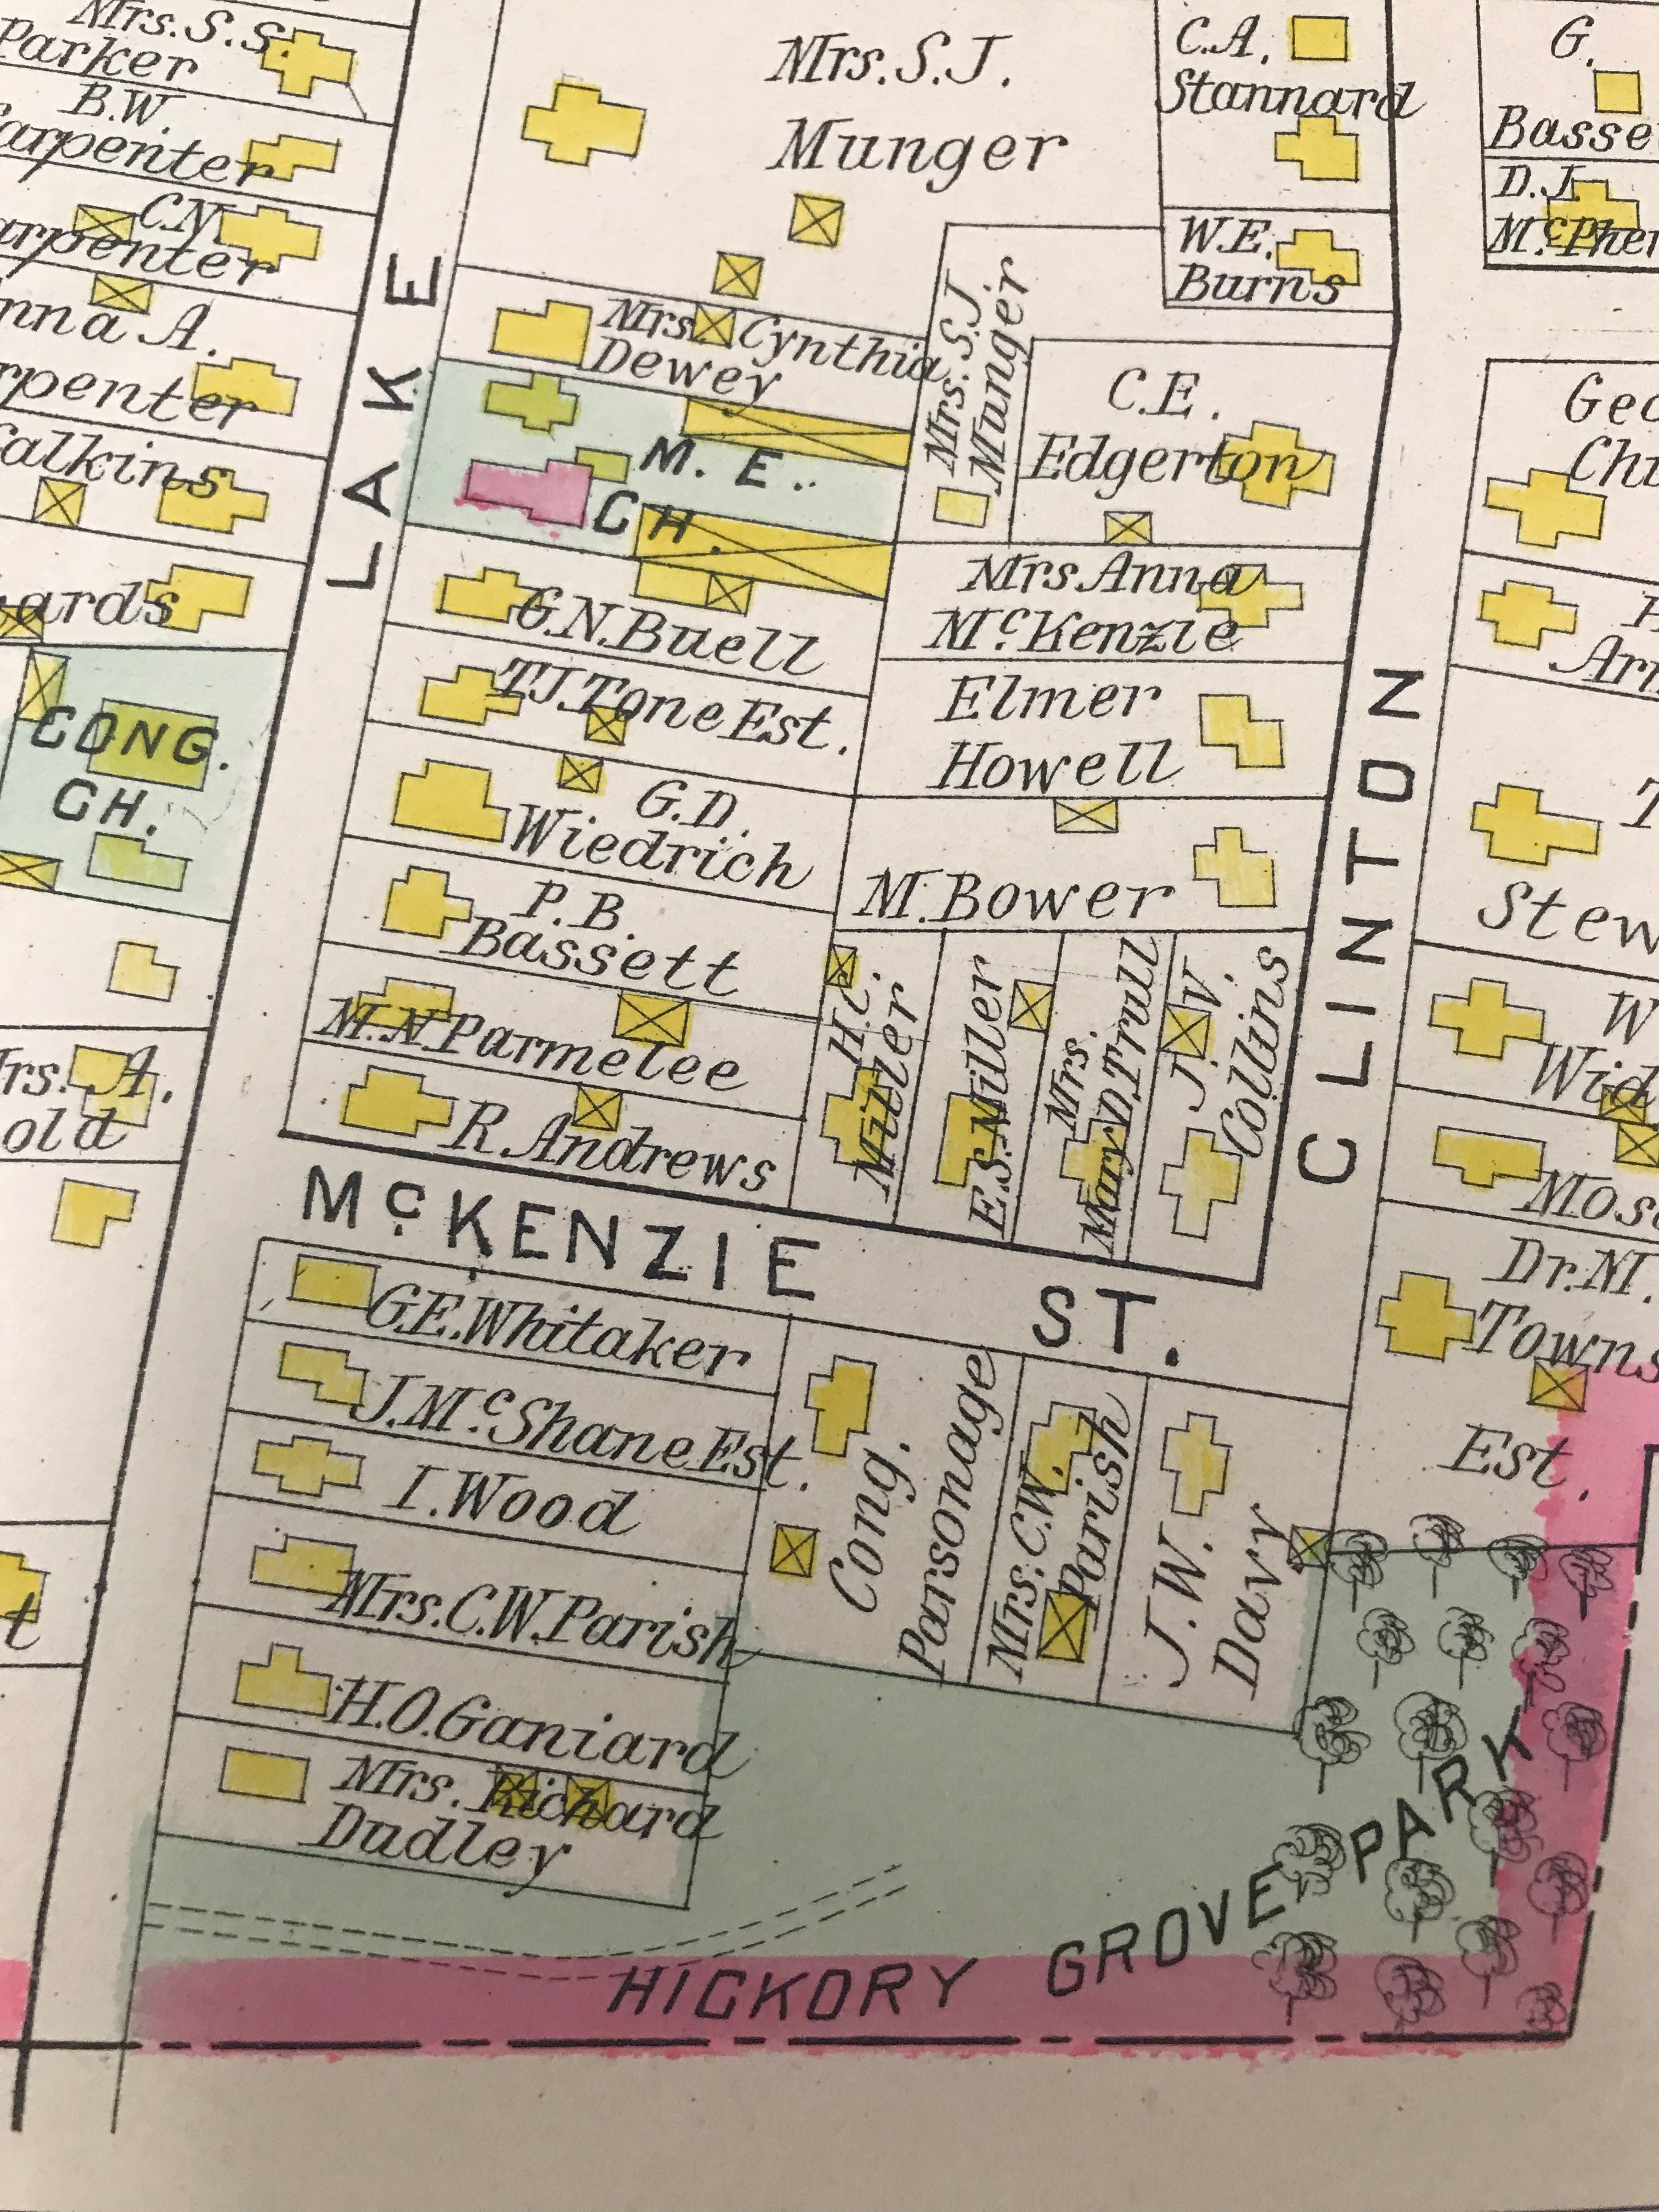 Mrs. S. S.
Parker
B.W.
Carpenter
C.N.
arpenter
nna A.
rpenter
Calkins
ards
CONG.
CH.
rs. A.
old
t
LAKE
Mrs. S. J.
Munger
C. A.
Stannard
W. E.
Burns
G.
Basse
D. J.
McPher
Mrs. Cynthia
Dewey
Mrs. S. J.
Munger
M. E.
CH.
C. E.
Edgerton
G. N. Buell
Mrs Anna
McKenzie
T J. Tone Est.
Elmer
Howell
G. D.
Wiedrich
M. Bower
P. B.
Bassett
M. N. Parmelee
R. Andrews
H. C.
Miller
E. S. Miller
Mrs.
Mary D. Trull
J. V.
Collins
CLINTON
Geo
Chu
Arn
T
Stew
W
Wid
Mose
Dr. M.
Towns
Est.
McKENZIE ST.
G. E. Whitaker
J. McShane Est.
I. Wood
Mrs. C. W. Parish
H. O. Ganiard
Mrs. Richard
Dudley
Cong.
Parsonage
Mrs. C. W.
Parish
J. W.
Davy
HICKORY GROVE PARK